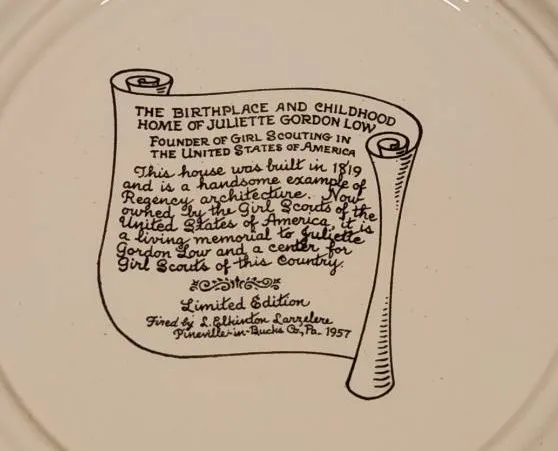 THE BIRTHPLACE AND CHILDHOOD
HOME OF JULIETTE GORDON LOW
FOUNDER OF GIRL SCOUTING IN
THE UNITED STATES OF AMERICA
This house was built in 1819
and is a handsome example of
Regency architecture. Now
owned by the Girl Scouts of the
United States of America, it is
a living memorial to Juliette
Gordon Low and a center for
Girl Scouts of this Country.
Limited Edition
Fired by L. Elkinton Larzelere
Pineville-in-Bucks Co., Pa. 1957